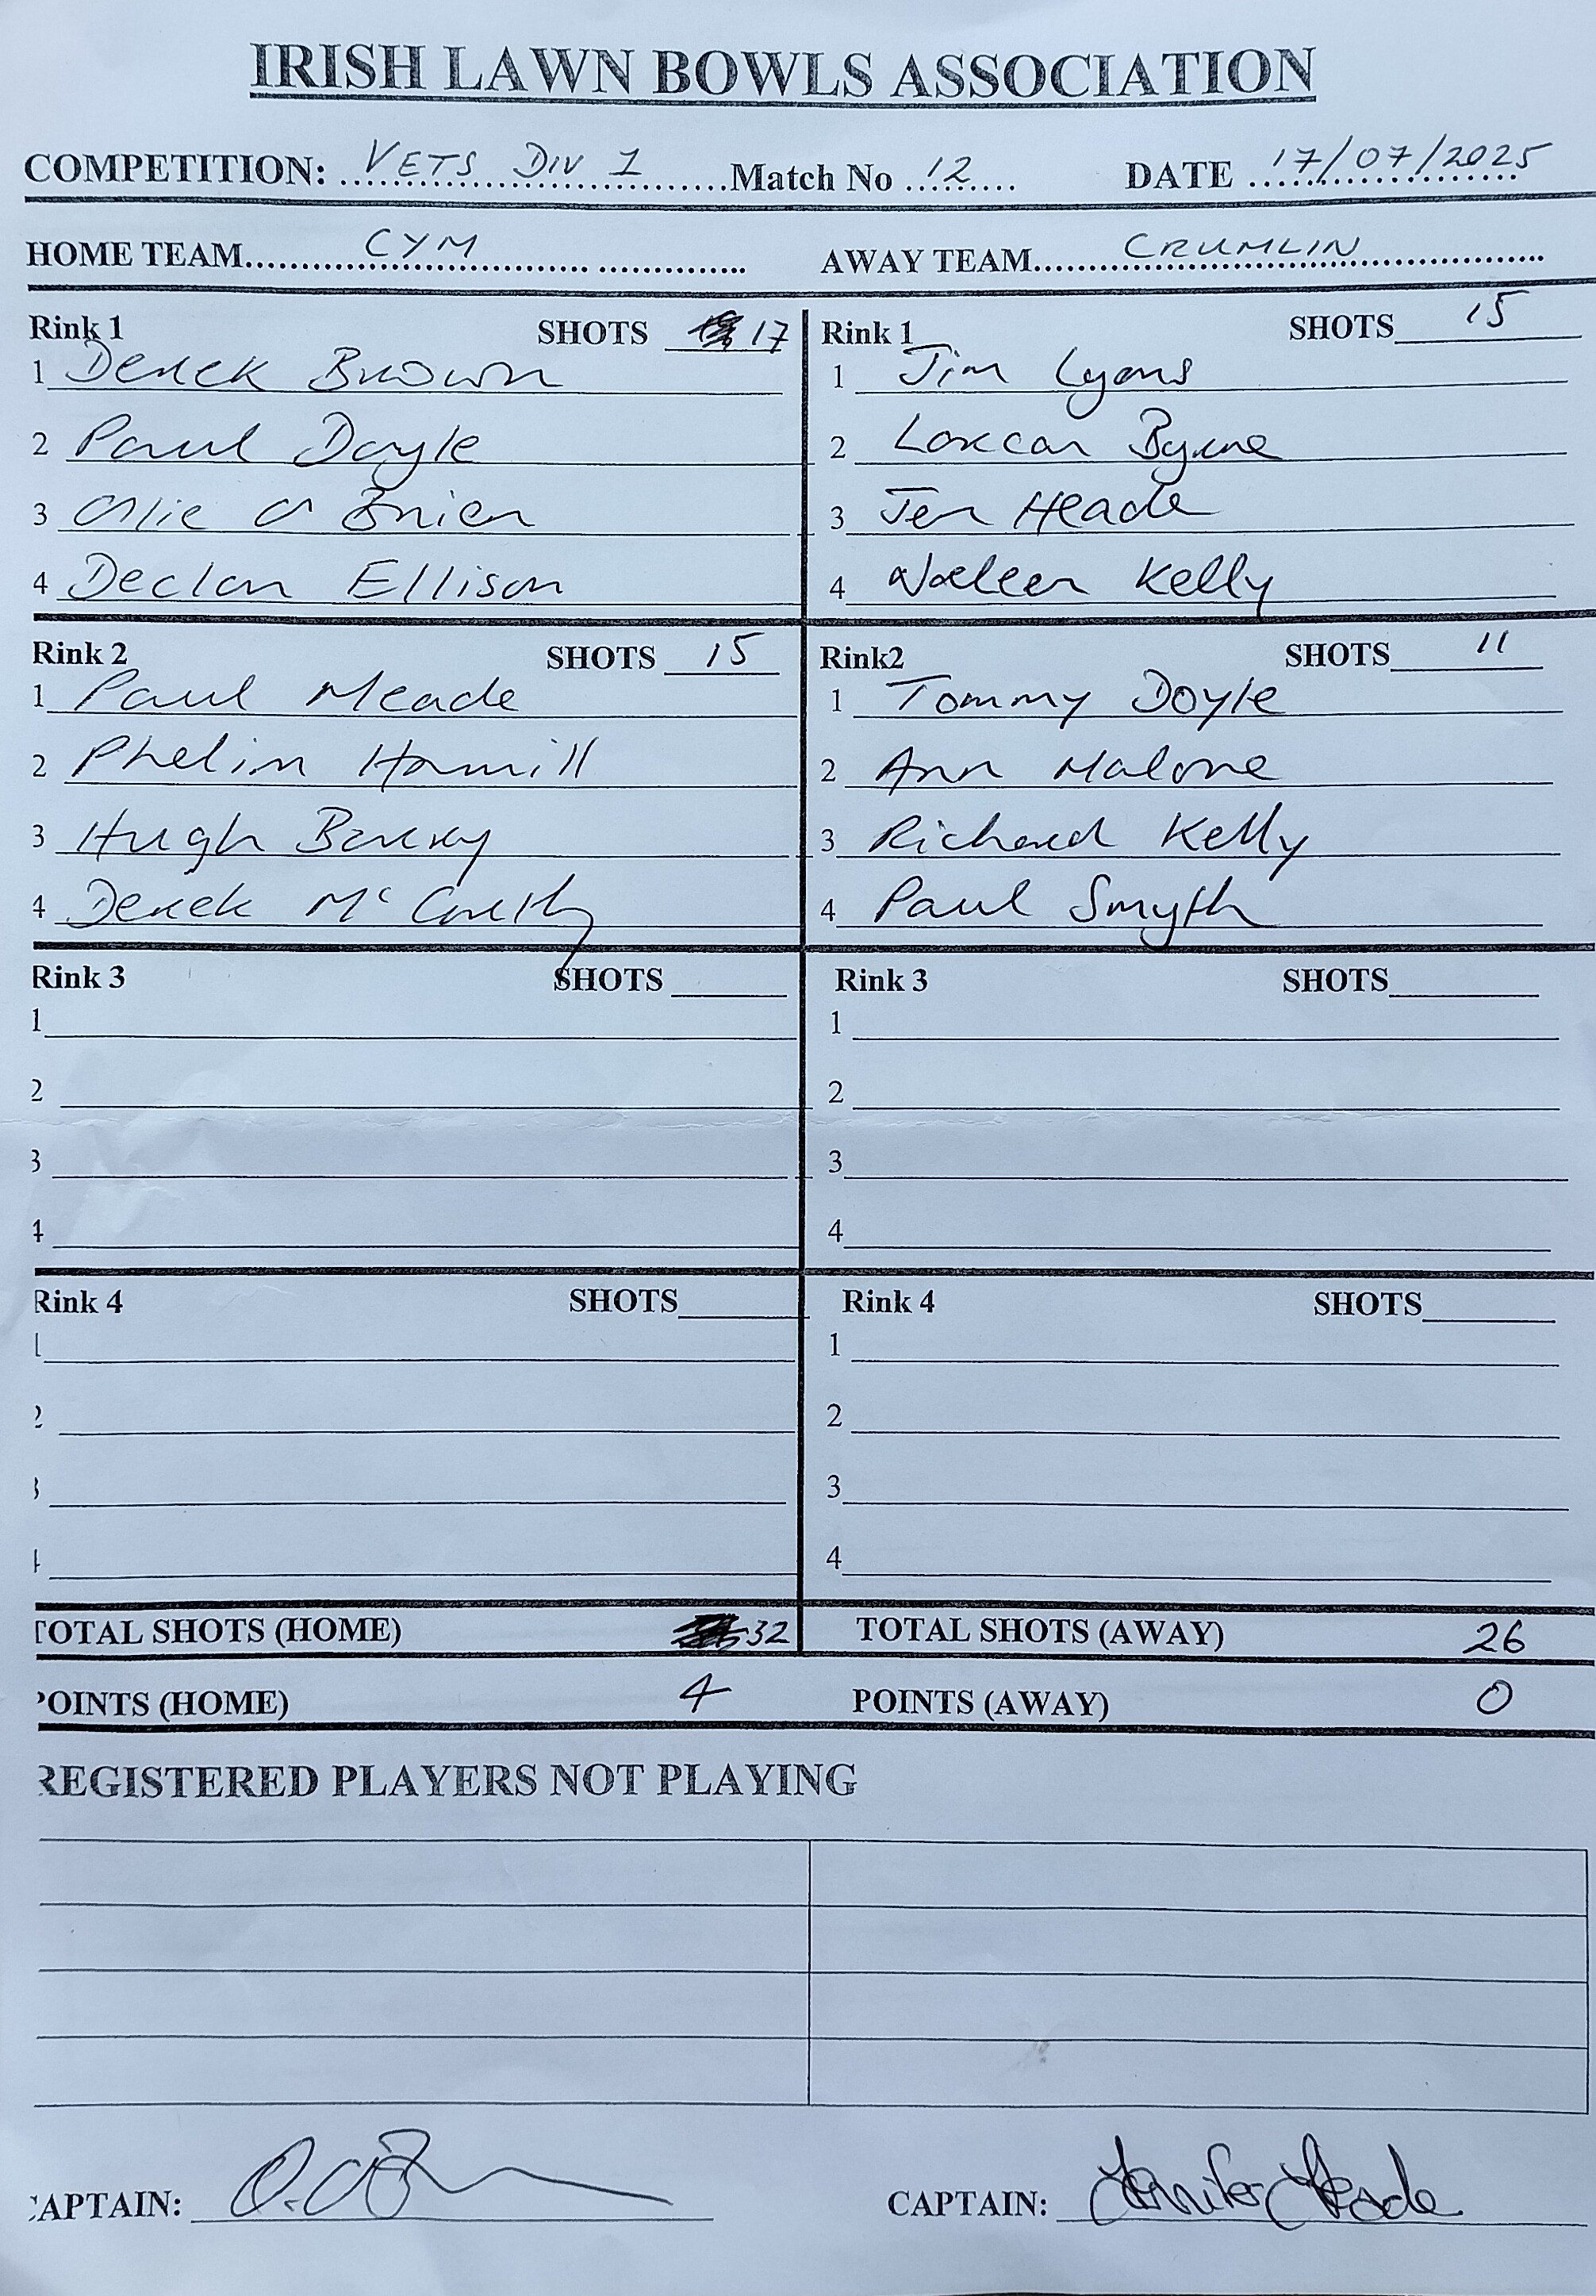 IRISH LAWN BOWLS ASSOCIATION
COMPETITION: VETS DIV 1 Match No 12 DATE 17/07/2025
HOME TEAM CYM AWAY TEAM CRUMLIN
Rink 1 SHOTS 17 Rink 1 SHOTS 15
1 Derek Brown 1 Jim Lyons
2 Paul Doyle 2 Lorcan Byrne
3 Olie O Brien 3 Jen Heade
4 Declan Ellison 4 Noeleen Kelly
Rink 2 SHOTS 15 Rink2 SHOTS 11
1 Paul Meade 1 Tommy Doyle
2 Phelim Hamill 2 Ann Malone
3 Hugh Barry 3 Richard Kelly
4 Derek Mc Carthy 4 Paul Smyth
Rink 3 SHOTS Rink 3 SHOTS
1 1
2 2
3 3
4 4
Rink 4 SHOTS Rink 4 SHOTS
1 1
2 2
3 3
4 4
TOTAL SHOTS (HOME) 32 TOTAL SHOTS (AWAY) 26
POINTS (HOME) 4 POINTS (AWAY) 0
REGISTERED PLAYERS NOT PLAYING
CAPTAIN: CAPTAIN: Jennifer Heade